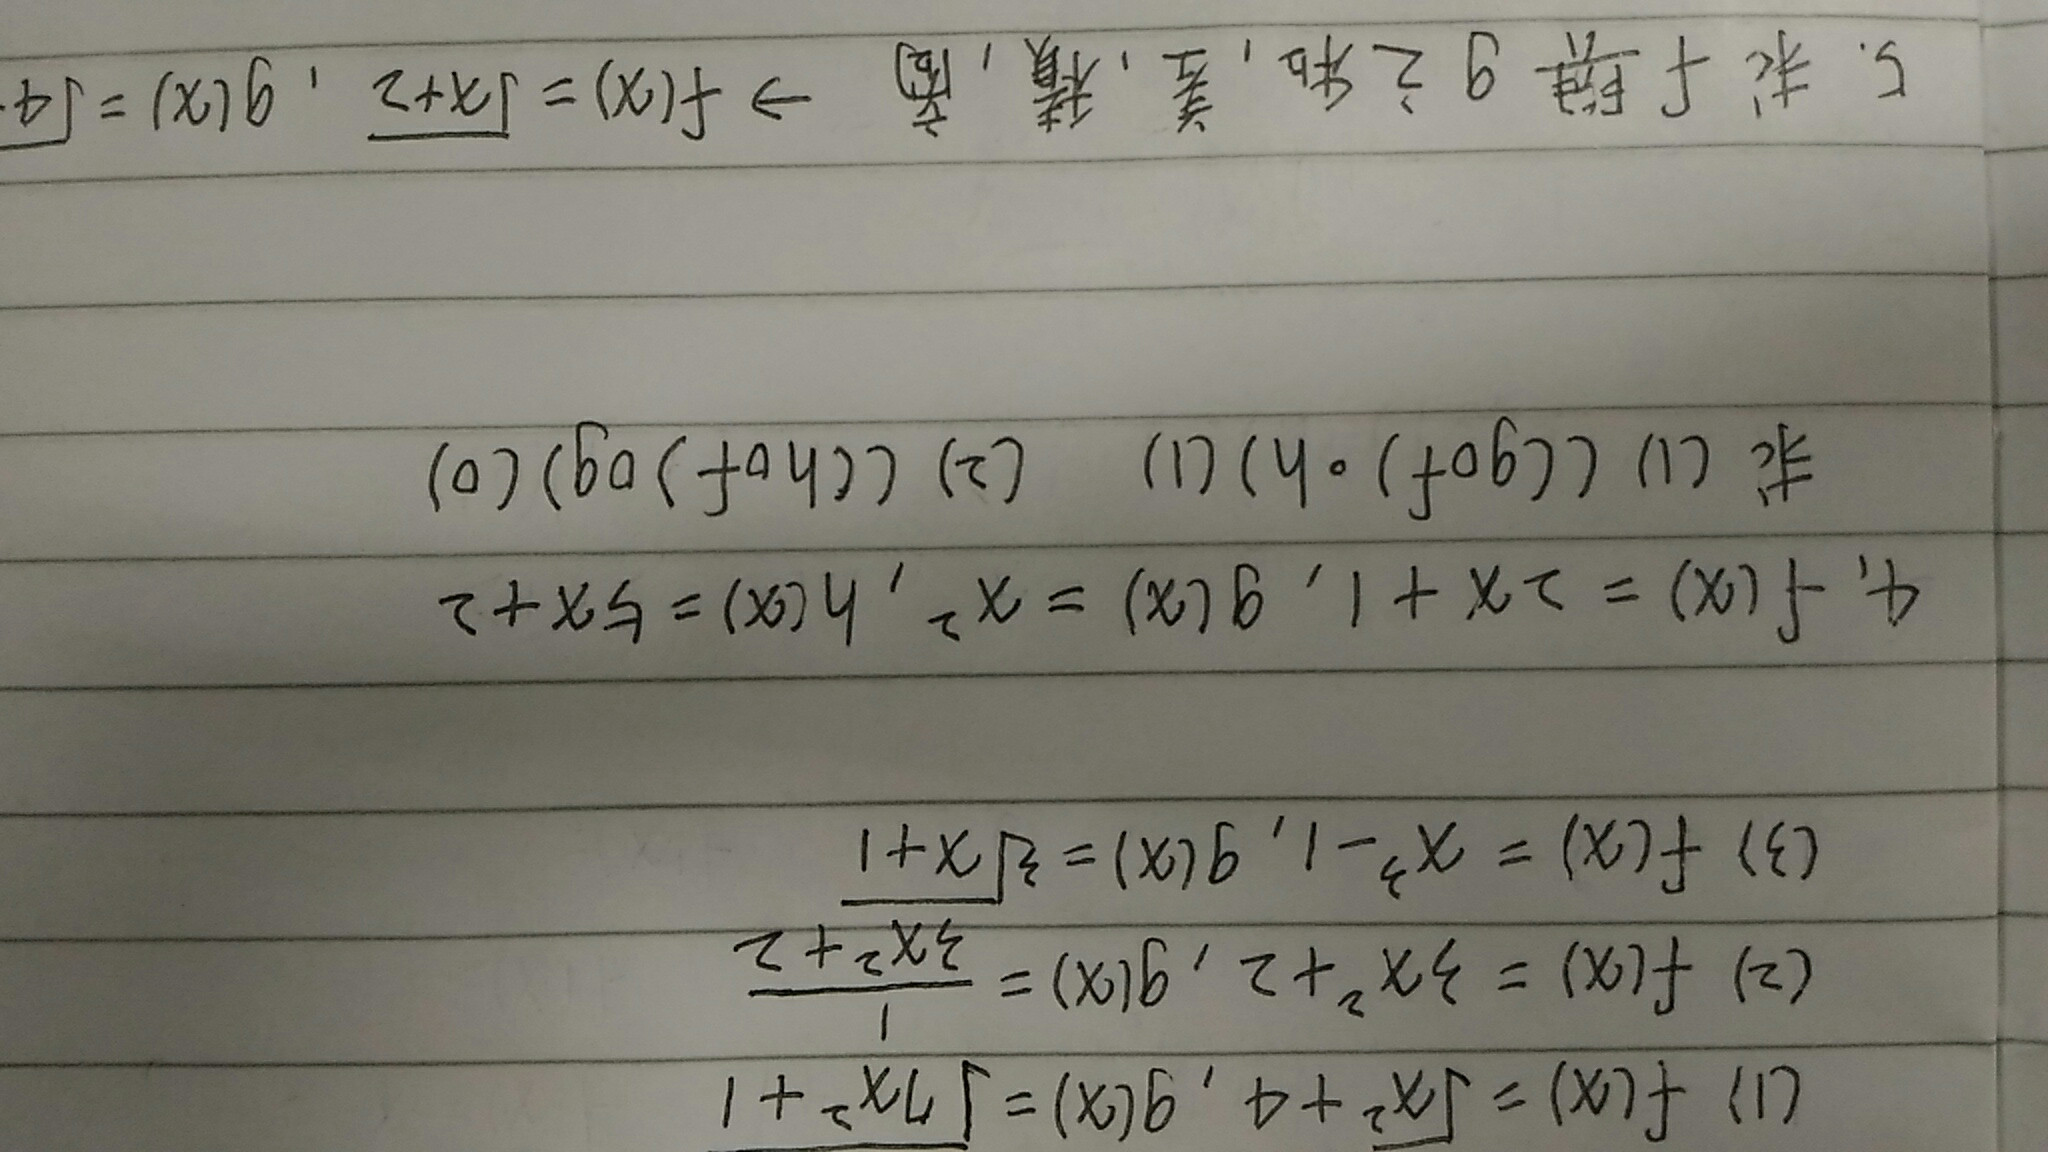 (1) f(x) = √x² + 4, g(x) = √7x² + 1
(2) f(x) = 3x² + 2, g(x) = 1/3x² + 2
(3) f(x) = x³ - 1, g(x) = ³√x+1
4, f(x) = 2x + 1, g(x) = x², h(x) = 5x + 2
求 (1) ((gof)∘h)(1) (2) ((hof)og)(0)
5. 求 f 與 g 之和, 差, 積, 商 → f(x) = √x+2, g(x) = √4